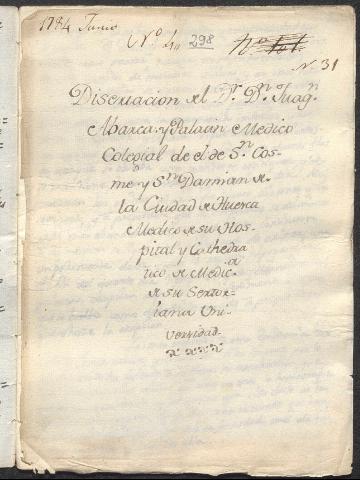 1784 Junio
Nº 40 298
N. 31
Disertacion del Dr. Dn. Juaqn
Abarca, y Palacin Medico
Colegial de el de Sn. Cos-
me y Sn. Damian de
la Ciudad de Huesca
Medico de su Hos-
pital y Cathedra
tico de Medica
de su Sertor-
iana Uni-
versidad.